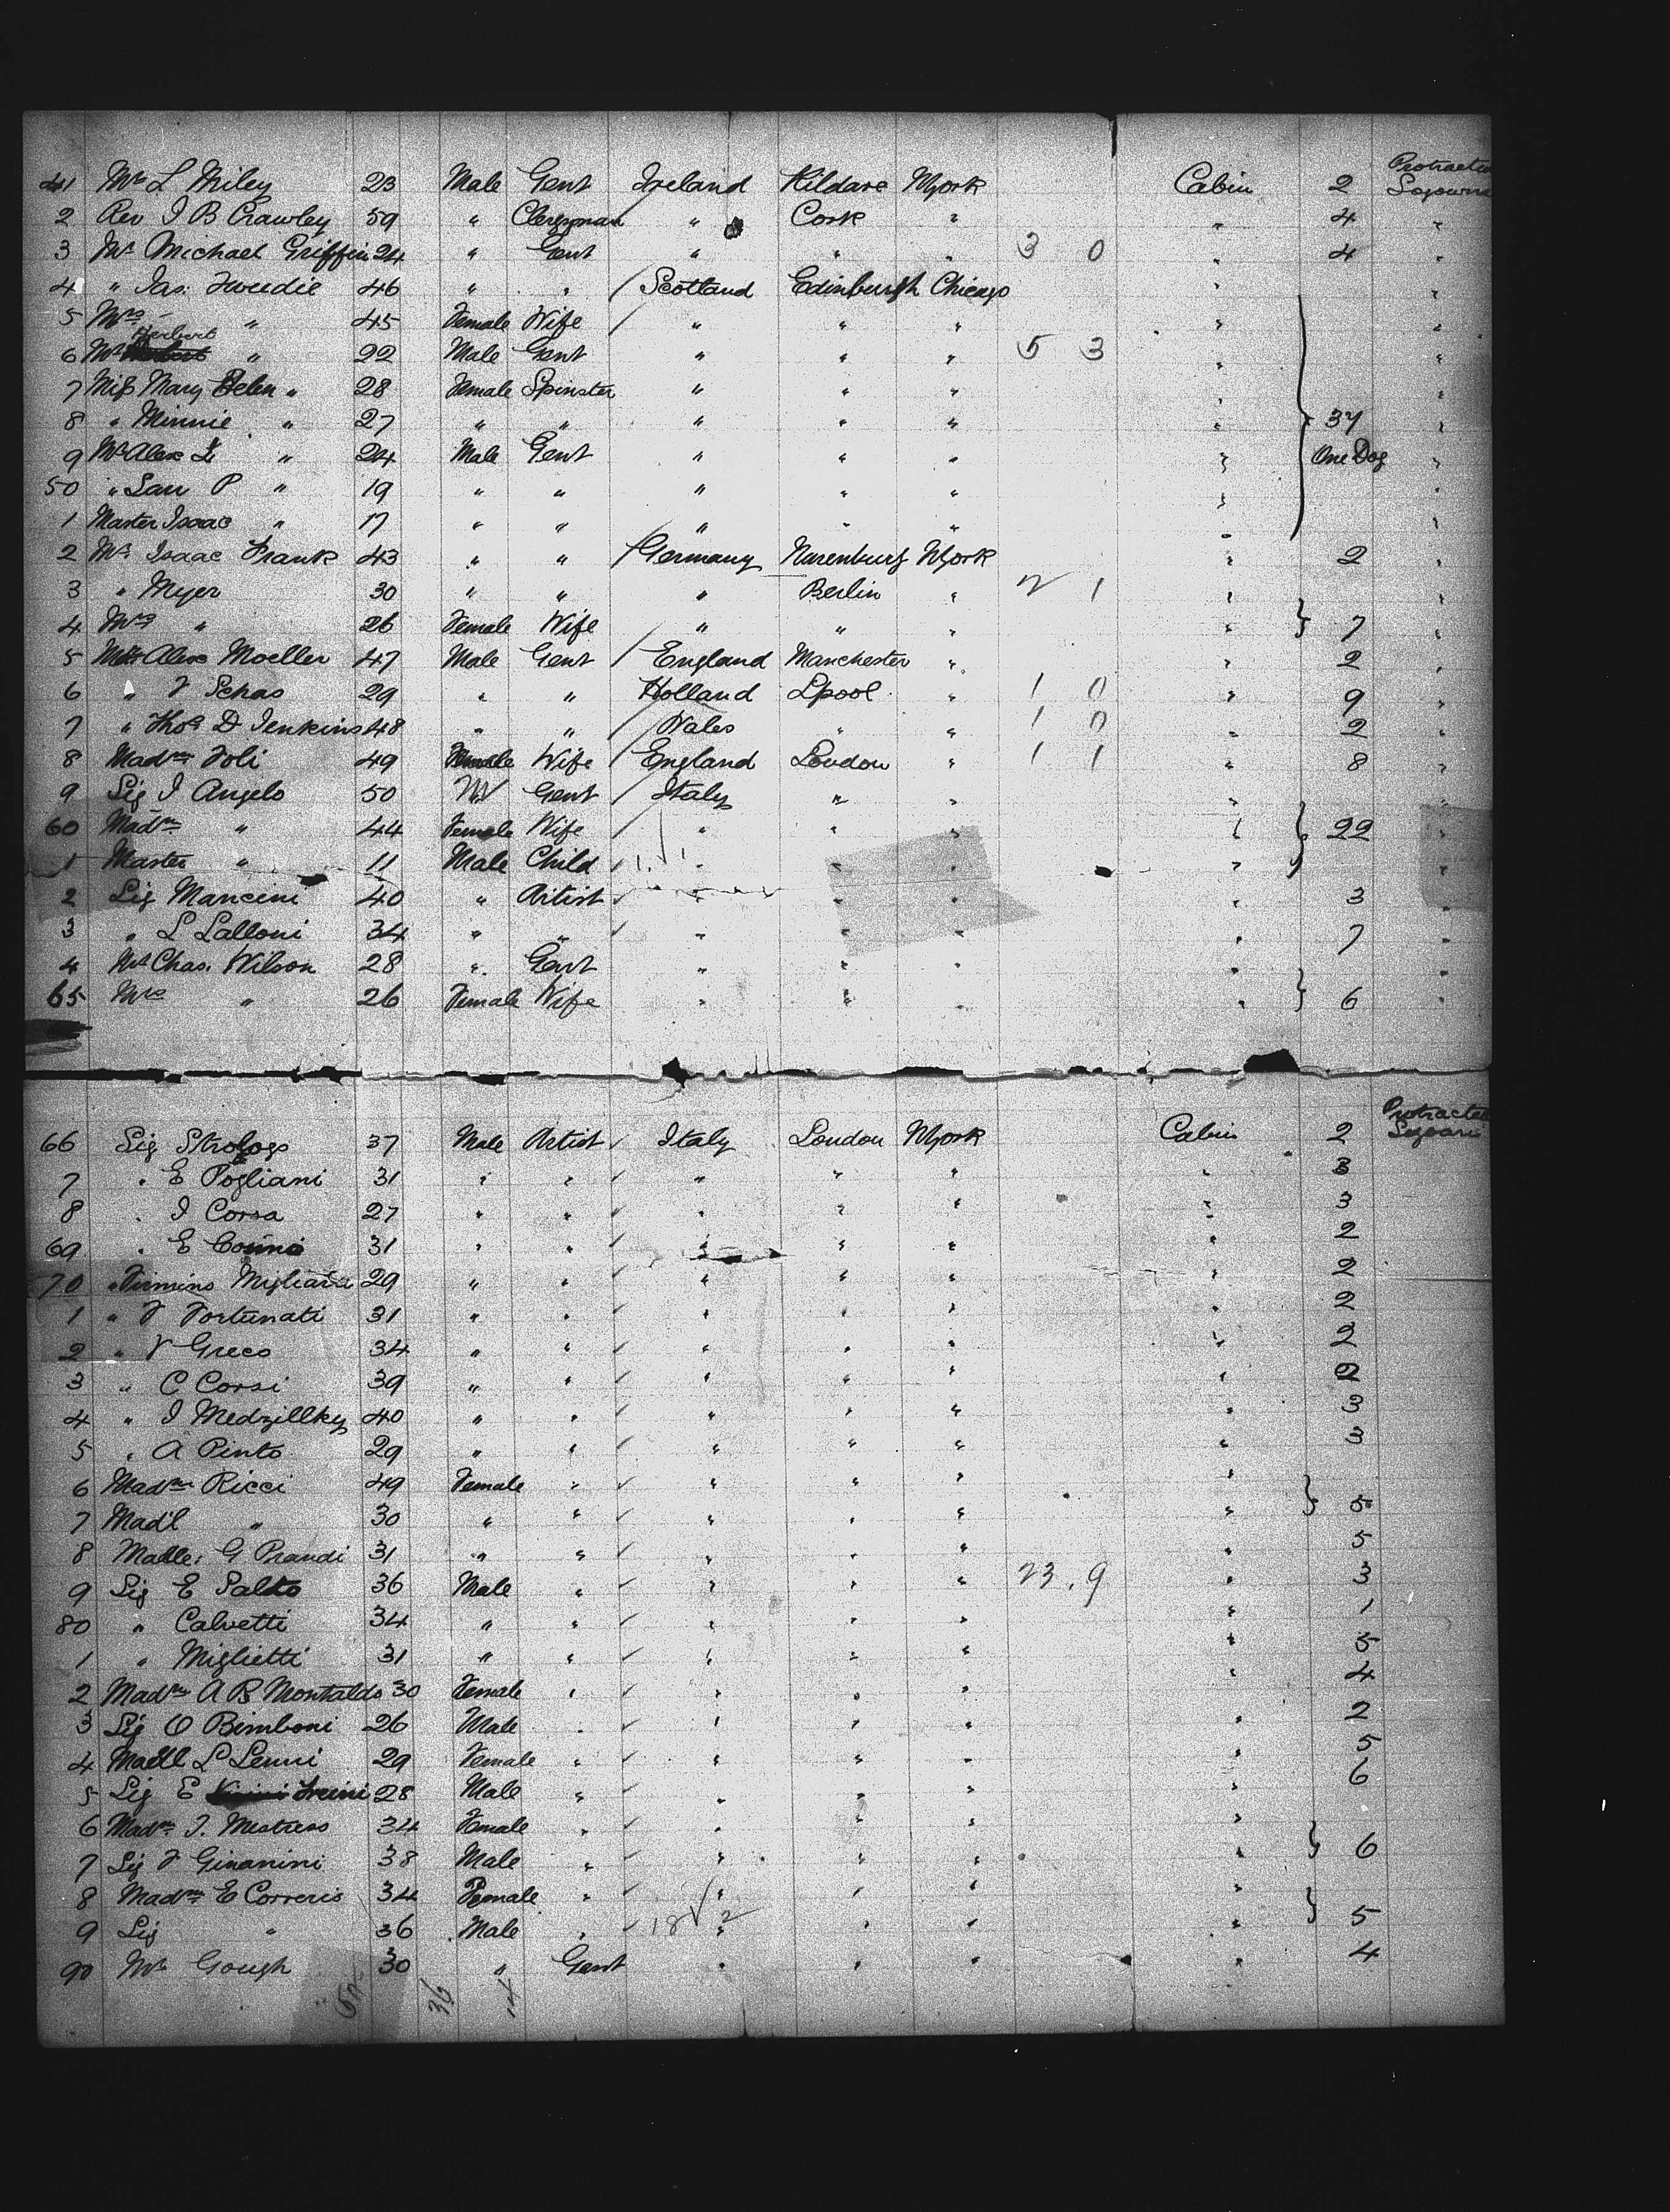 Protracted
41 Mr L Miley 23 Male Gent Ireland Kildare NYork Cabin 2 Sojourn
2 Rev J B Crawley 59 " Clergyman " Cork " " 4 "
3 Mr Michael Griffin 24 " Gent " " " 3 0 " 4 "
4 " Jas. Tweedie 46 " " Scotland Edinburgh Chicago " "
5 Mrs " 45 Female Wife " " " " "
Herbert
6 Mr " 22 Male Gent " " " 5 3 " "
7 Miss Mary Helen " 28 Female Spinster " " " " "
8 " Minnie " 27 " " " " " " 37 "
9 Mr Alex " 24 Male Gent " " " " One Dog "
50 " P " 19 " " " " " " "
1 Master Isaac " 17 " " " " " " "
2 Mr Isaac Frank 43 " " Germany Nurenburg NYork " 2 "
3 " Myer 30 " " " Berlin " 2 1 " "
4 Mrs " 26 Female Wife " " " " 7 "
5 Alex Moeller 47 Male Gent England Manchester " " 2 "
6 " Schas 29 " " Holland Lpool " 1 0 " 9 "
7 " Thos D Jenkins 48 " " Wales " " 1 0 " 2 "
8 Madm Foli 49 Female Wife England London " 1 1 " 8 "
9 Sig J Angelo 50 M Gent Italy " " " "
60 Madm " 44 Female Wife " " " " 22 "
1 Master " 11 Male Child " " " " "
2 Sig Mancini 40 " Artist " " " " 3 "
3 " L Lalloni 34 " " " " " " 7 "
4 Mr Chas. Wilson 28 " Gent " " " " "
65 Mrs " 26 Female Wife " " " " 6 "
Protracted
66 Sig 37 Male Artist Italy London NYork Cabin 2
7 " E Pogliani 31 " " " " " " 3
8 " J Corsa 27 " " " " " " 3
69 " E Cosimo 31 " " " " " " 2
70 " Firmino Migliara 29 " " " " " " 2
1 " F Fortunati 31 " " " " " " 2
2 " V Greco 34 " " " " " " 2
3 " C Corsi 39 " " " " " " 2
4 " J Medzillky 40 " " " " " " 3
5 " A Pinto 29 " " " " " " 3
6 Madm Ricci 49 Female " " " " "
7 Mad'l " 30 " " " " " " 5
8 Madlle G Prandi 31 " " " " " " 5
9 Sig E Salto 36 Male " " " " 23 . 9 " 3
80 " Calvetti 34 " " " " " " 1
1 " Miglietti 31 " " " " " " 5
2 Madm A B Montaldo 30 Female " " " " " 4
3 Sig O Bimboni 26 Male " " " " " 2
4 Madll L Lenni 29 Female " " " " " 5
5 Sig E 28 Male " " " " " 6
6 Madm J. 34 Female " " " " "
7 Sig F Gianini 38 Male " " " " " 6
8 Madm E Correris 34 Female " " " " "
9 Sig " 36 Male " 18 2 " " " " 5
90 Mr Gough 30 " Gent " " " " 4
36